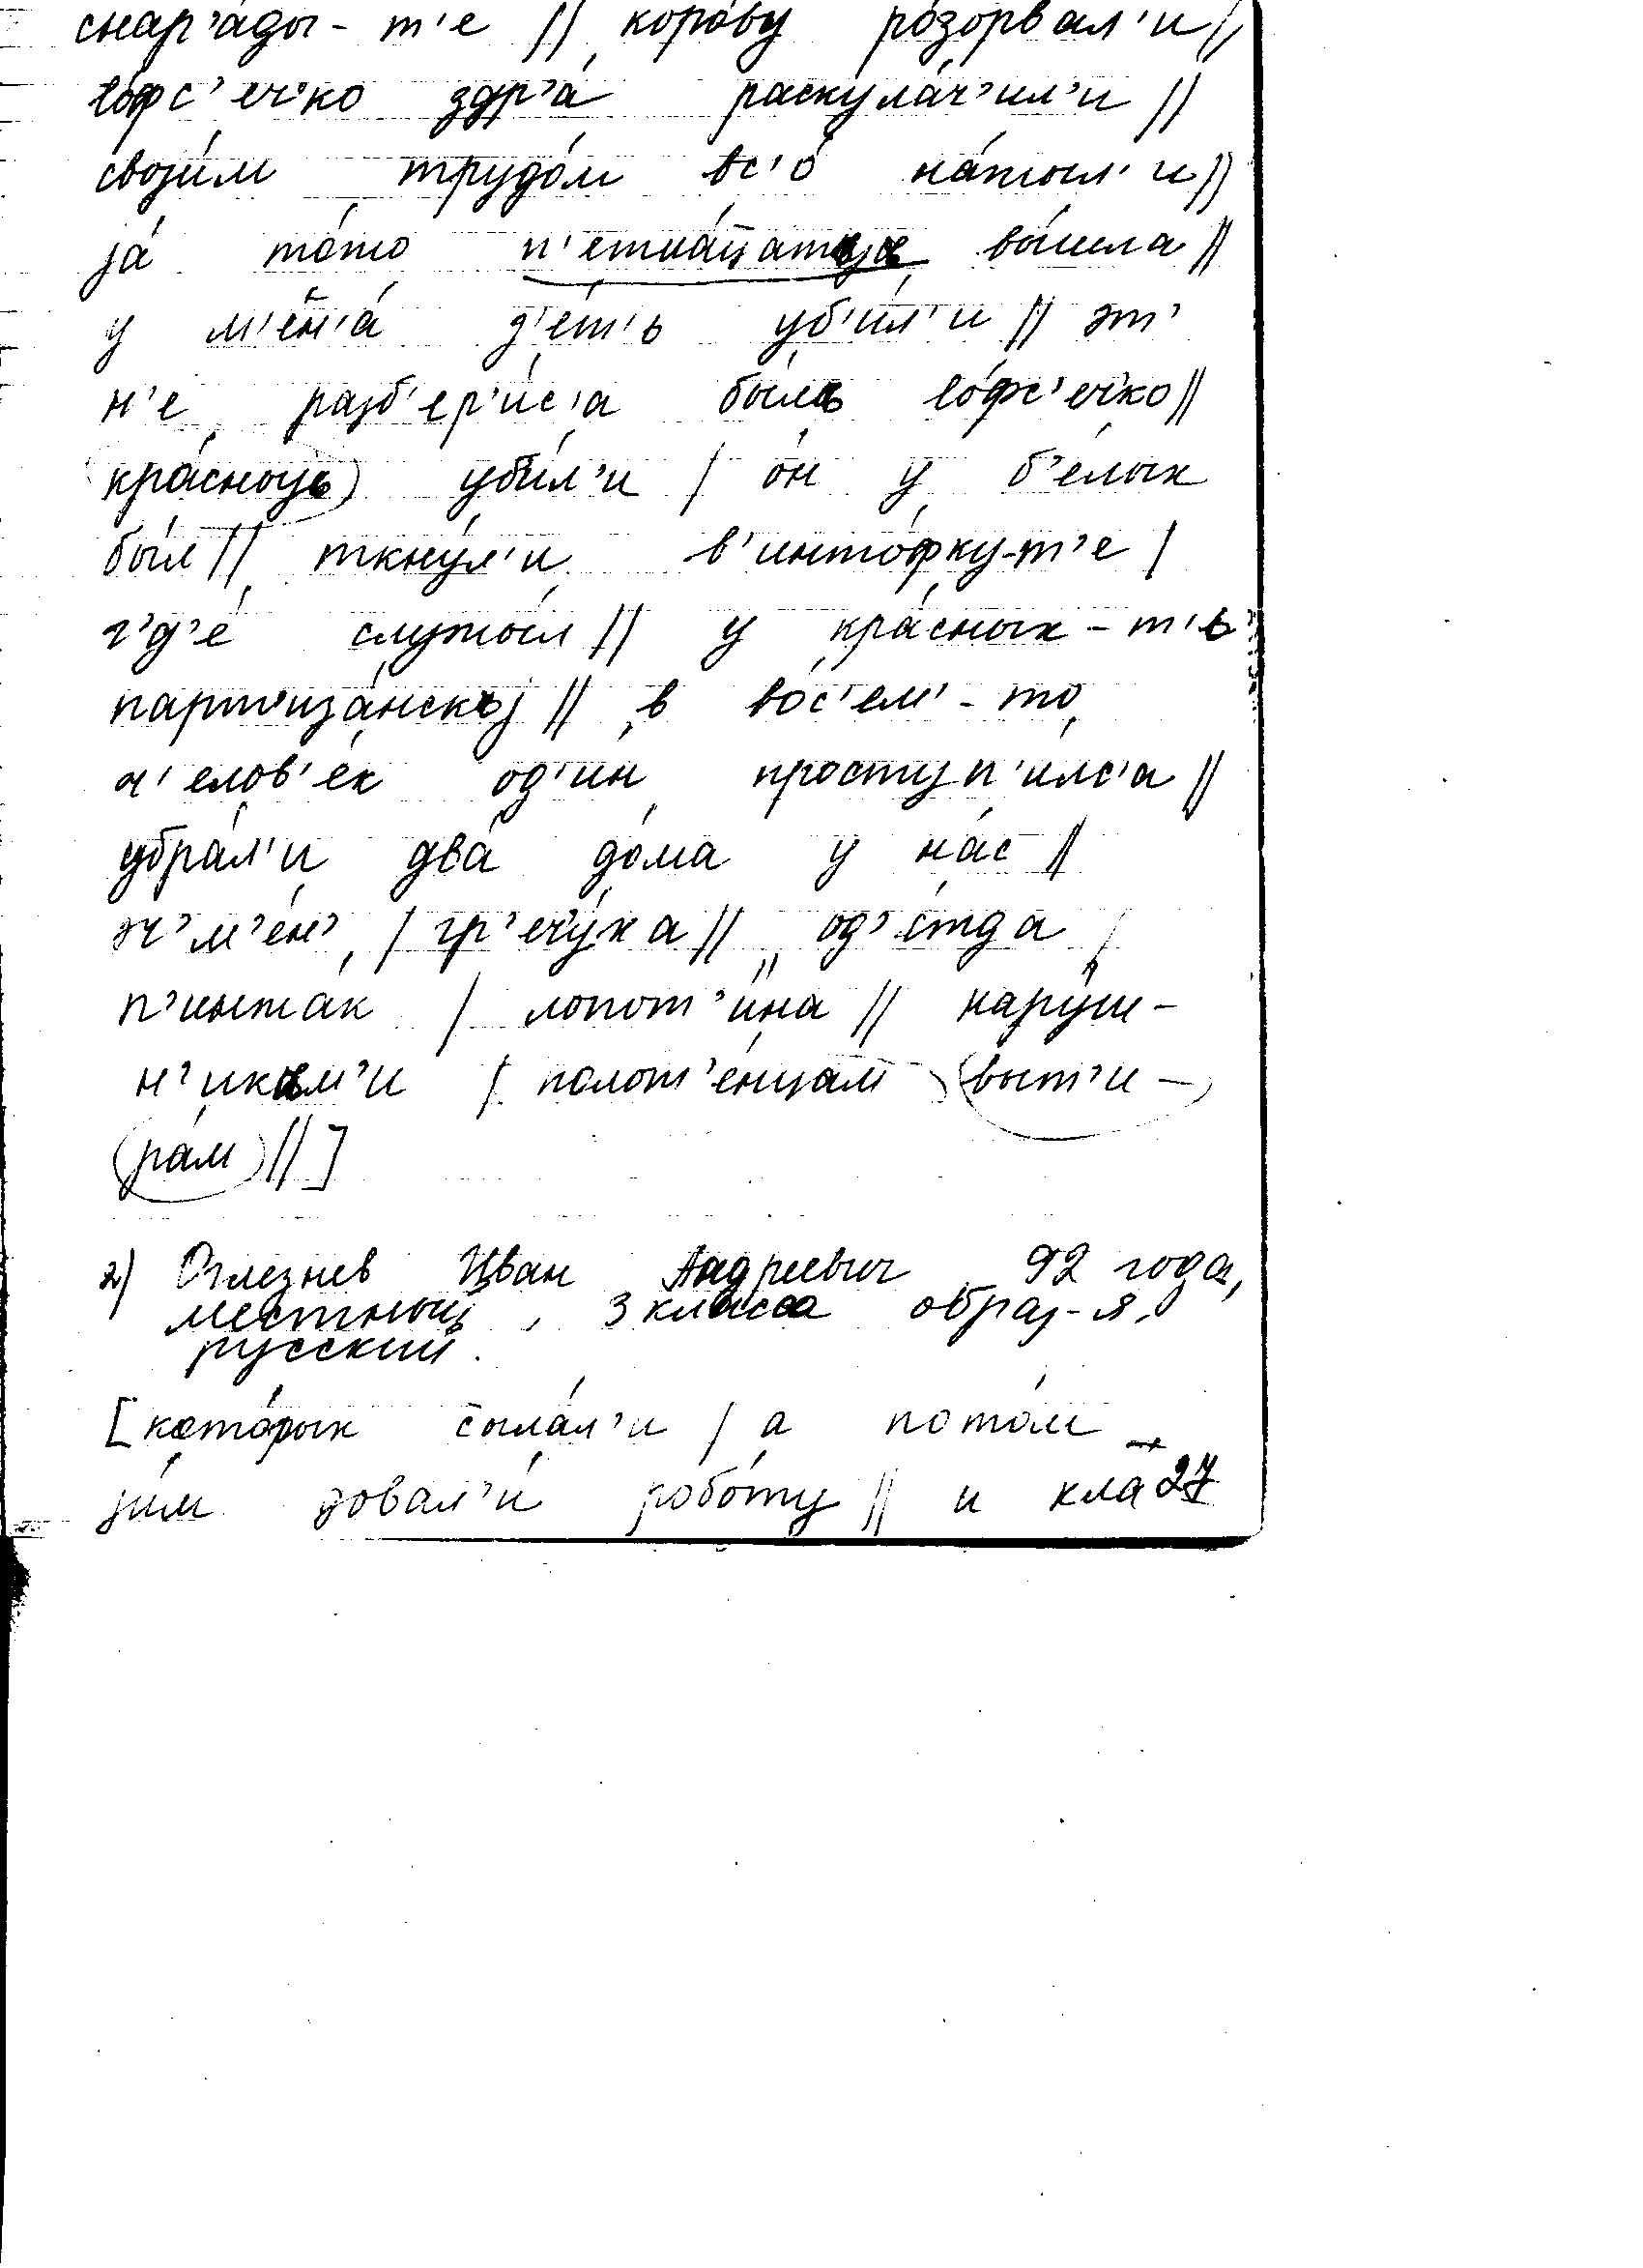 снар'а́ды- т'е // коро́ву ро́зорвал'и //
во́фс'еч'ко здр'а́ раскула́ч'ил'и //
своји́м трудо́м вс'о́ на́жыл'и //
ја́ то́жо п'етна́цатъја вы́шла //
у м'ен'а́ д'е́т'ь уб'и́л'и // эт'
н'е разб'ер'и́с'а бы́ло во́фс'ечко //
кра́сныјь уби́л'и / о́н у б'е́лых
бы́л // ткну́л'и в'инто́фку-т'е /
г'д'е́ служы́л // у кра́сных - т'ь
парт'иза́нскъј // в во́с'ем' - то
ч'елов'е́к од'и́н проступ'и́лс'а //
убра́л'и два́ до́ма у на́с //
эч'м'е́н' / гр'ечу́ха // од'е́жда /
п'инжа́к / лопот'и́на // нару́ш-
н'икам'и / полот'е́нцам выт'и -
ра́м // ]
2) Оглезнев Иван Андреевич 92 года,
местный, 3 класса образ-я,
русский.
[ кото́рых сыла́л'и / а пото́м
ји́м довал'и́ робо́ту // и кла
27